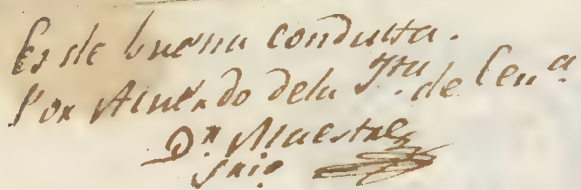 Es de buena conducta.
Por Acuerdo dela Jta. de Cena
Dr. Maestre
Srio.